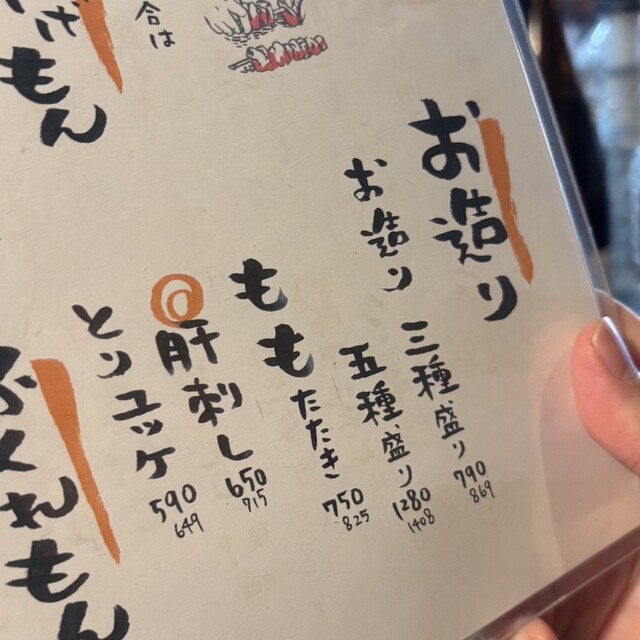 お造り
お造り
三種盛り 790 869
五種盛り 1280 1408
ももたたき 750 825
肝刺し 650 715
とりユッケ 590 649
合は
げもん
ぷくれもん